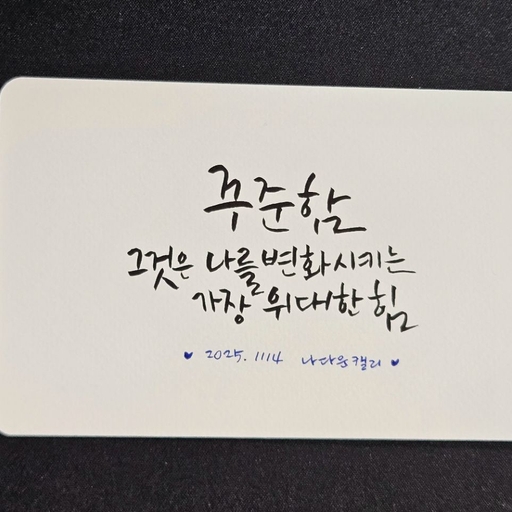 꾸준함
그것은 나를 변화시키는
가장 위대한 힘
♥ 2025. 1114 나다운캘리 ♥